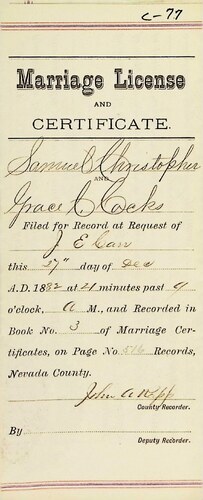 C-77
Marriage License
AND
CERTIFICATE.
Samuel Christopher
AND
Grace C Cocks
Filed for Record at Request of
J E Carr
this 27" day of Dec
A.D. 1882 at 21 minutes past 9
o'clock, A M., and Recorded in
Book No. 3 of Marriage Cer-
tificates, on Page No. Records,
Nevada County.
John A Rapp
County Recorder.
By
Deputy Recorder.